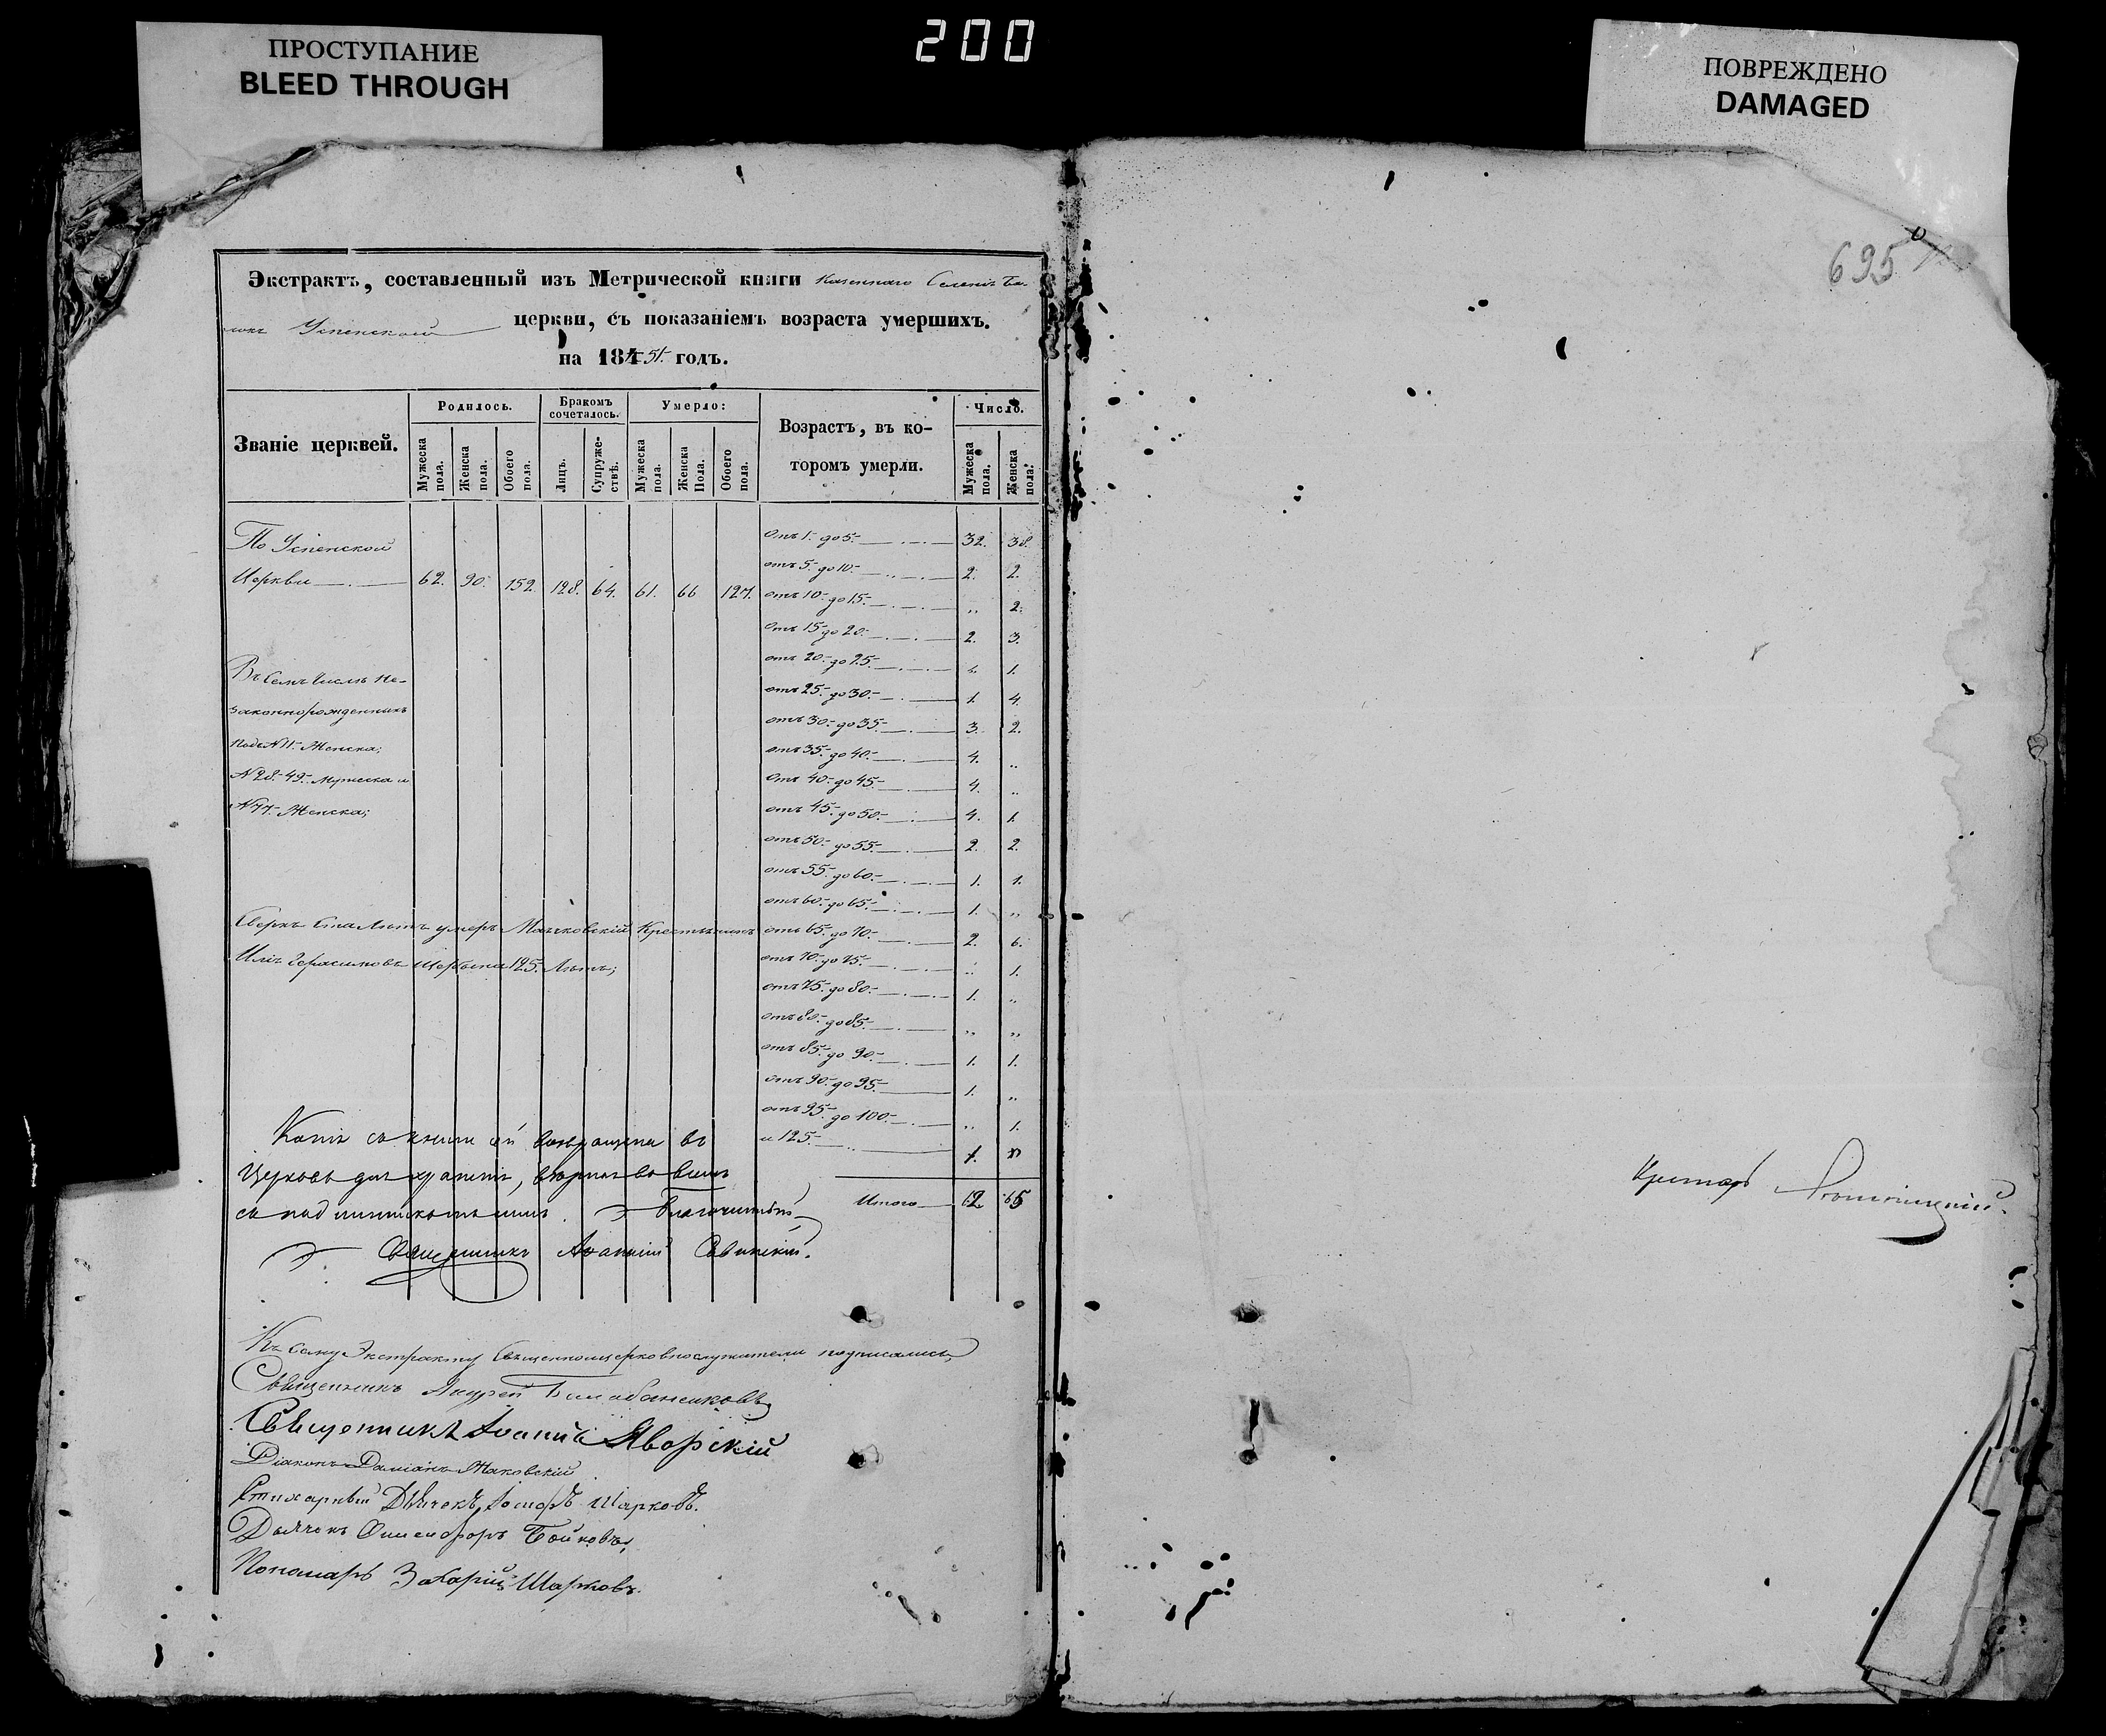 200
ПРОСТУПАНИЕ
BLEED THROUGH
ПОВРЕЖДЕНО
DAMAGED
695
Экстрактъ, составленный изъ Метрической книги казеннаго Селенія Ба-
Успенской церкви, съ показаніемъ возраста умершихъ.
на 18451 годъ.
Званіе церквей.
Родилось.
Мужеска пола.
Женска пола.
Обоего пола.
Бракомъ сочеталось.
Лицъ.
Супружествъ.
Умерло:
Мужеска пола.
Женска Пола.
Обоего пола.
Возрастъ, въ которомъ умерли.
Число.
Мужеска пола.
Женска пола.
По Успенской
Церкви 62. 90. 152. 128. 64. 61. 66 127.
Въ Семъ Числѣ не-
законнорожденныхъ
подъ N 11. Женска;
N 28. 49. Мужеска и
N 77. Женска;
Сверхъ Ста Лѣтъ умеръ Крестьянинъ
125. Лѣтъ;
отъ 1. до 5. 32. 38.
отъ 5. до 10. 2. 2.
отъ 10. до 15. „ 2.
отъ 15. до 20. 2. 3.
отъ 20. до 25. 1.
отъ 25. до 30. 1. 4.
отъ 30. до 35. 3. 2.
отъ 35. до 40. 4. „
отъ 40. до 45. 4. „
отъ 45. до 50. 4. 1.
отъ 50. до 55. 2. 2.
отъ 55. до 60. 1. 1.
отъ 60. до 65. 1. „
отъ 65. до 70. 2. 6.
отъ 70. до 75. „ 1.
отъ 75. до 80. 1. „
отъ 80. до 85. „ „
отъ 85. до 90. 1. 1.
отъ 90. до 95. 1. „
отъ 95. до 100. „ 1.
и 125. 1. „
Итого 62 65
Копія съ книги сей возвращена въ
Церковь для храненія, вѣрна во всемъ
съ подлинникомъ Благочинный
Священникъ
Къ сему Экстракту Священноцерковнослужители подписались,
Священникъ Андрей
Священникъ Іоаннъ Яворскій
Діаконъ Даміанъ Маковскій
Стихарный Дьячекъ Іосифъ Шарковъ.
Дьячекъ Онисифоръ Бойковъ,
Пономарь Захарій Шарковъ.